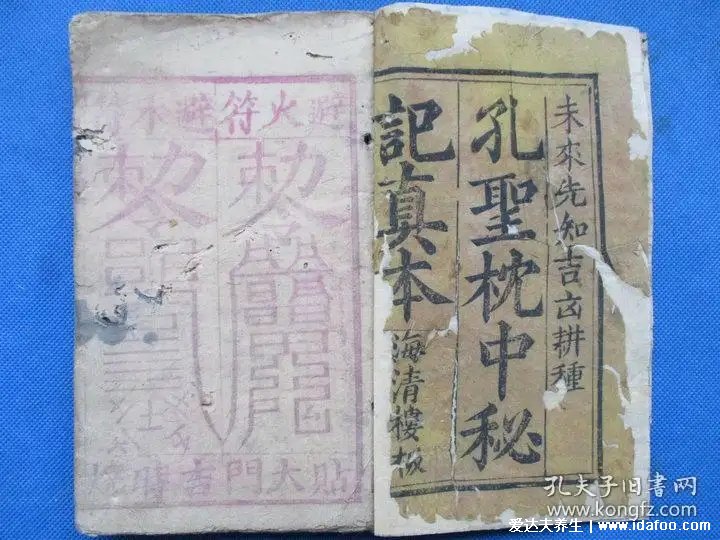 未來先知吉凶耕種
孔聖枕中秘
記真本
海清樓板
避火符
避水符
敕
敕
貼大門吉
孔夫子旧书网
www.kongfz.com
爱达夫养生 | www.idafoo.com